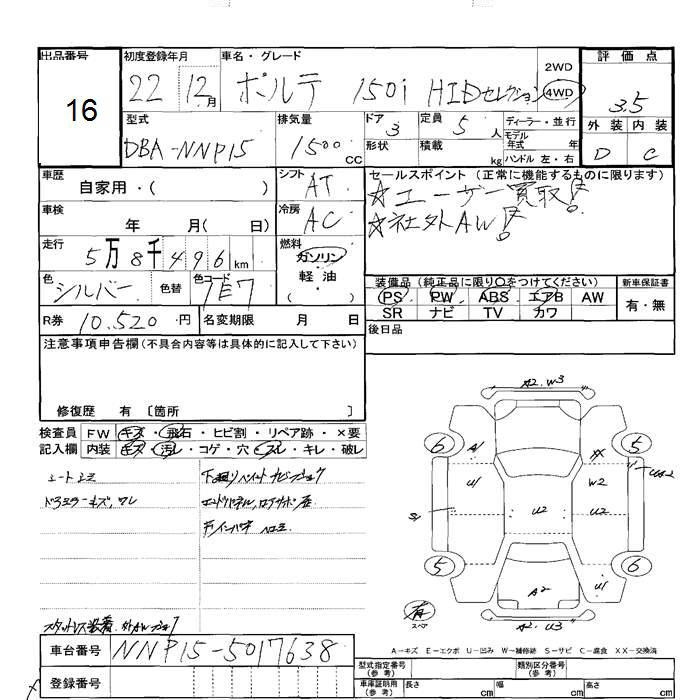 出品番号 初度登録年月 車名・グレード 評価点
16 22 12月 ポルテ 150i HIDセレクション 2WD 4WD 3.5
型式 排気量 ドア 3 定員 5 人 ディーラー・並行 外装 内装
DBA-NNP15 1500 cc 形状 積載 kg モデル年式 年 ハンドル 左・右 D C
車歴 自家用・( ) シフト AT セールスポイント(正常に機能するものに限ります)
☆ユーザー買取!
車検 年 月( 日) 冷房 AC ☆社外AW!
走行 5万8千496km 燃料 ガソリン 軽油 ( )
色 シルバー 色替 色コード 1E7 装備品(純正品に限り○をつけてください) 新車保証書
PS PW ABS エアB AW 有・無
R券 10.520円 名変期限 月 日 SR ナビ TV カワ
後日品
注意事項申告欄(不具合内容等は具体的に記入して下さい)
修復歴 有 〔箇所 〕
検査員 FW キズ・飛石・ヒビ割・リペア跡・×要
記入欄 内装 キズ・汚レ・コゲ・穴・スレ・キレ・破レ
A2.W3
6 A1 XX 5
U1 W2
S1 U2 U2
5 A2 U1 6
有 スペア A2.U3
A-キズ E-エクボ U-凹み W-補修跡 S-サビ C-腐食 XX-交換済
車台番号 NNP15-5017638
登録番号
型式指定番号(参考) 類別区分番号(参考)
車庫証明用(参考) 長さ cm 幅 cm 高さ cm